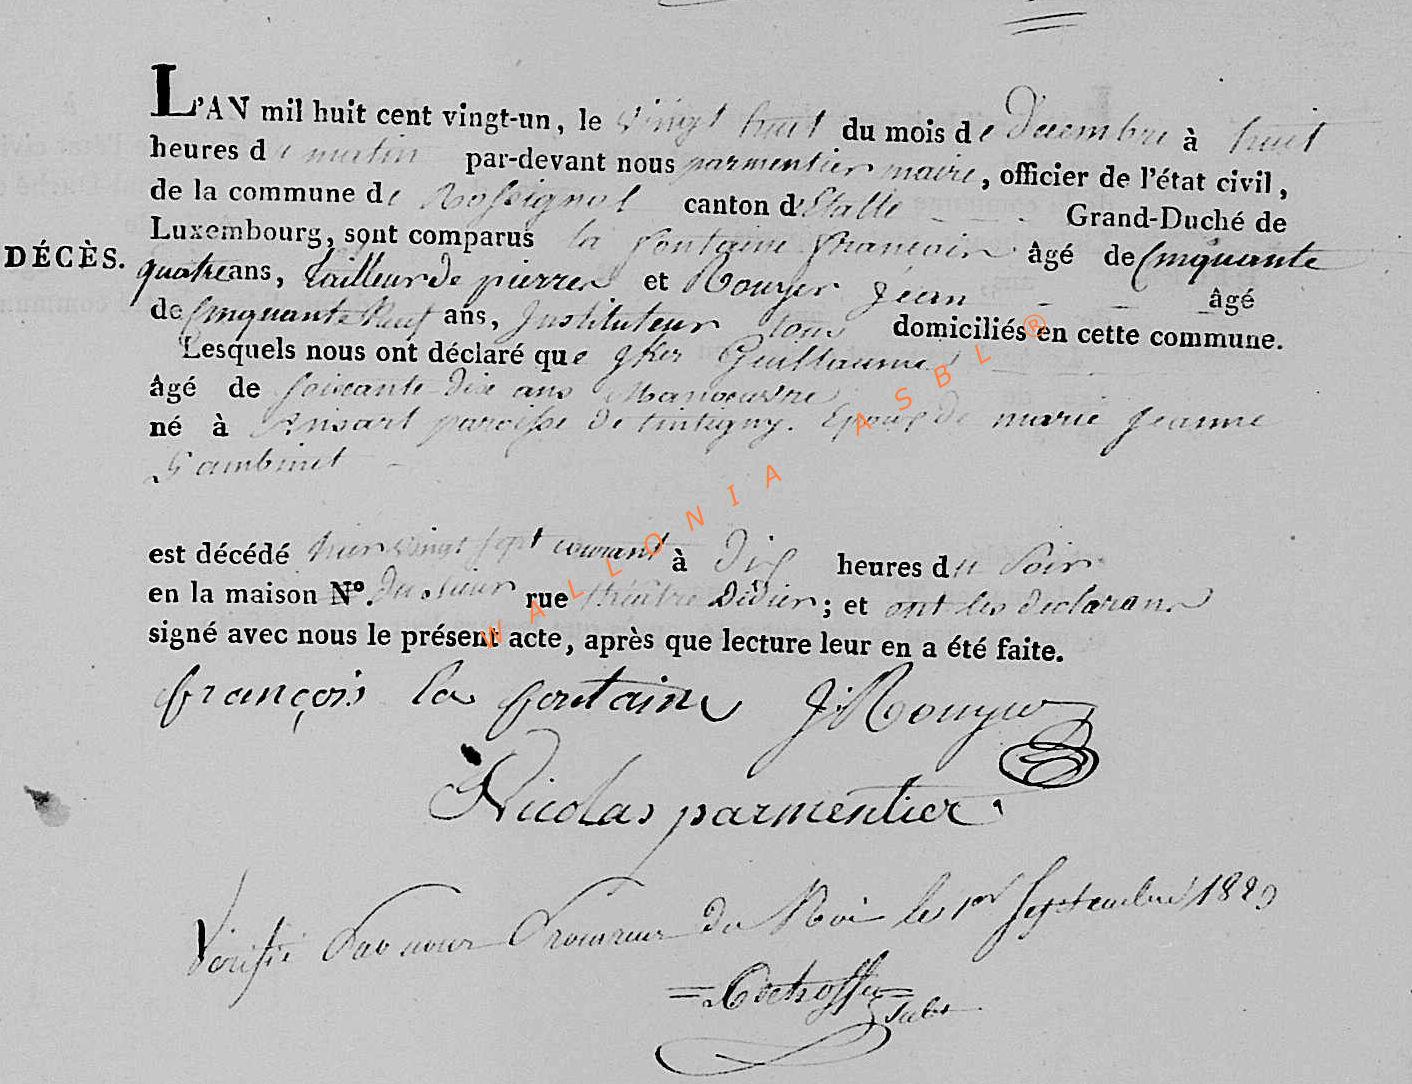 L'AN mil huit cent vingt-un, le vingt huit du mois de Decembre à huit
heures du matin par-devant nous parmentier maire, officier de l'état civil,
de la commune de Rossignol canton d'Etalle Grand-Duché de
Luxembourg, sont comparus la fontaine françois âgé de Cinquante
DÉCÈS.
quatre ans, tailleur de pierres et Rouyer jean âgé
de Cinquante neuf ans, Instituteur tous domiciliés en cette commune.
Lesquels nous ont déclaré que Guillaume
âgé de soixante dix ans Manoeuvre
né à Ansart paroisse de tintigny. Epoux de marie jeanne
est décédé hier vingt sept courant à Dix heures du soir
en la maison N°. du sieur rue théâtre Didier; et ont les declarans
signé avec nous le présent acte, après que lecture leur en a été faite.
françois la fontaine J Rouyer
Nicolas parmentier
Vérifié Par nous Procureur du Roi le 1er Septembre 1829
Subt
WALLONIA ASBL ®